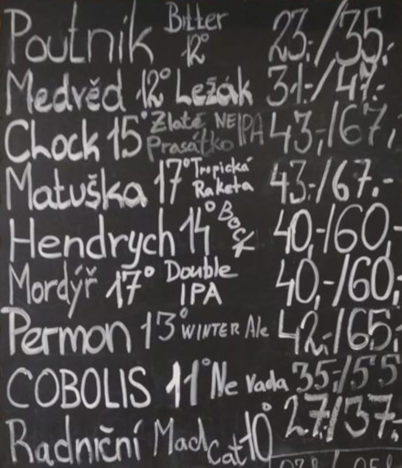 Poutník Bitter 12° 23,-/35,-
Medvěd 12° Ležák 31,-/47,-
Chock 15° Zlaté Prasátko NEIPA 43,-/67,-
Matuška 17° Tropická Raketa 43,-/67,-
Hendrych 14° Bock 40,-/60,-
Mordýř 17° Double IPA 40,-/60,-
Permon 13° WINTER Ale 42,-/65,-
COBOLIS 11° Ne vada 35,/55
Radniční Mad Cat 10° 27,/37,-